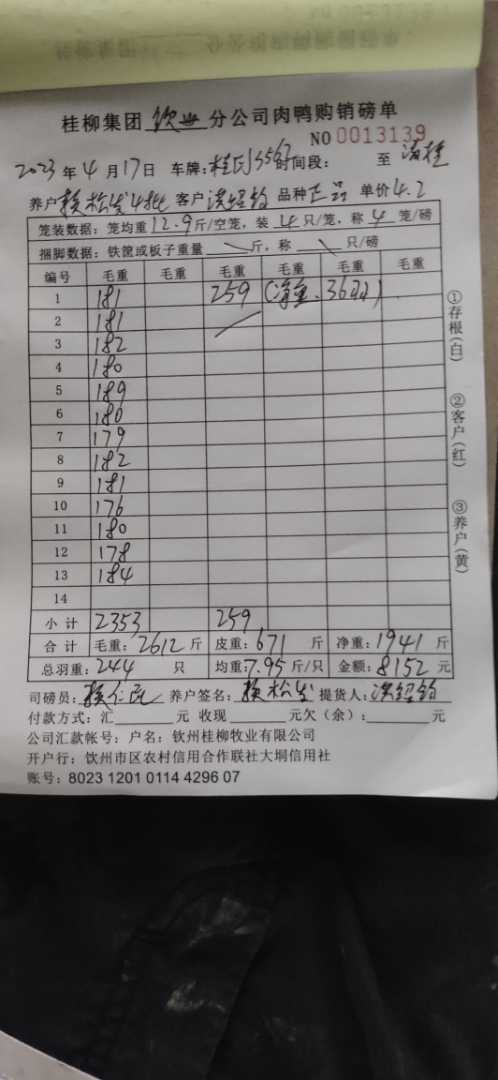 桂柳集团 钦州 分公司肉鸭购销磅单
NO 0013139
2023 年 4 月 17 日 车牌: 时间段: 至
养户 赖松发 4批 客户 品种 正品 单价 4.2
笼装数据: 笼均重 12.9 斤/空笼, 装 4 只/笼, 称 4 笼/磅
捆脚数据: 铁篼或板子重量 斤, 称 只/磅
编号 毛重 毛重 毛重 毛重 毛重 毛重
1 181 259 (净重 36只)
2 181
3 182
4 180
5 189
6 180
7 179
8 182
9 181
10 176
11 180
12 178
13 184
14
小计 2353 259
合计 毛重: 2612 斤 皮重: 671 斤 净重: 1941 斤
总羽重: 244 只 均重: 7.95 斤/只 金额: 8152 元
司磅员: 养户签名: 赖松发 提货人:
付款方式: 汇 元 收现 元欠(余): 元
公司汇款帐号: 户名: 钦州桂柳牧业有限公司
开户行: 钦州市区农村信用合作联社大垌信用社
账号: 8023 1201 0114 4296 07
①存根(白)
②客户(红)
③养户(黄)